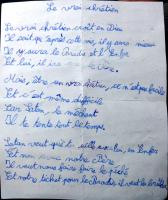 Le vrai chrétien
Le vrai chrétien croit en Dieu
Il sait qu'après cette vie, il y aura mieux
Il y aura le Paradis et l'Enfer
Et lui, il ira
Mais, être un vrai chrétien, ce n'est pas facile
Et c'est même difficile
Car Satan, le méchant
Il te tente tout le temps.
Satan veut qu'il aille en Enfer
Et non avec notre Père
Il veut nous faire faire le péché
Et notre ticket pour le Paradis, il veut le brûler